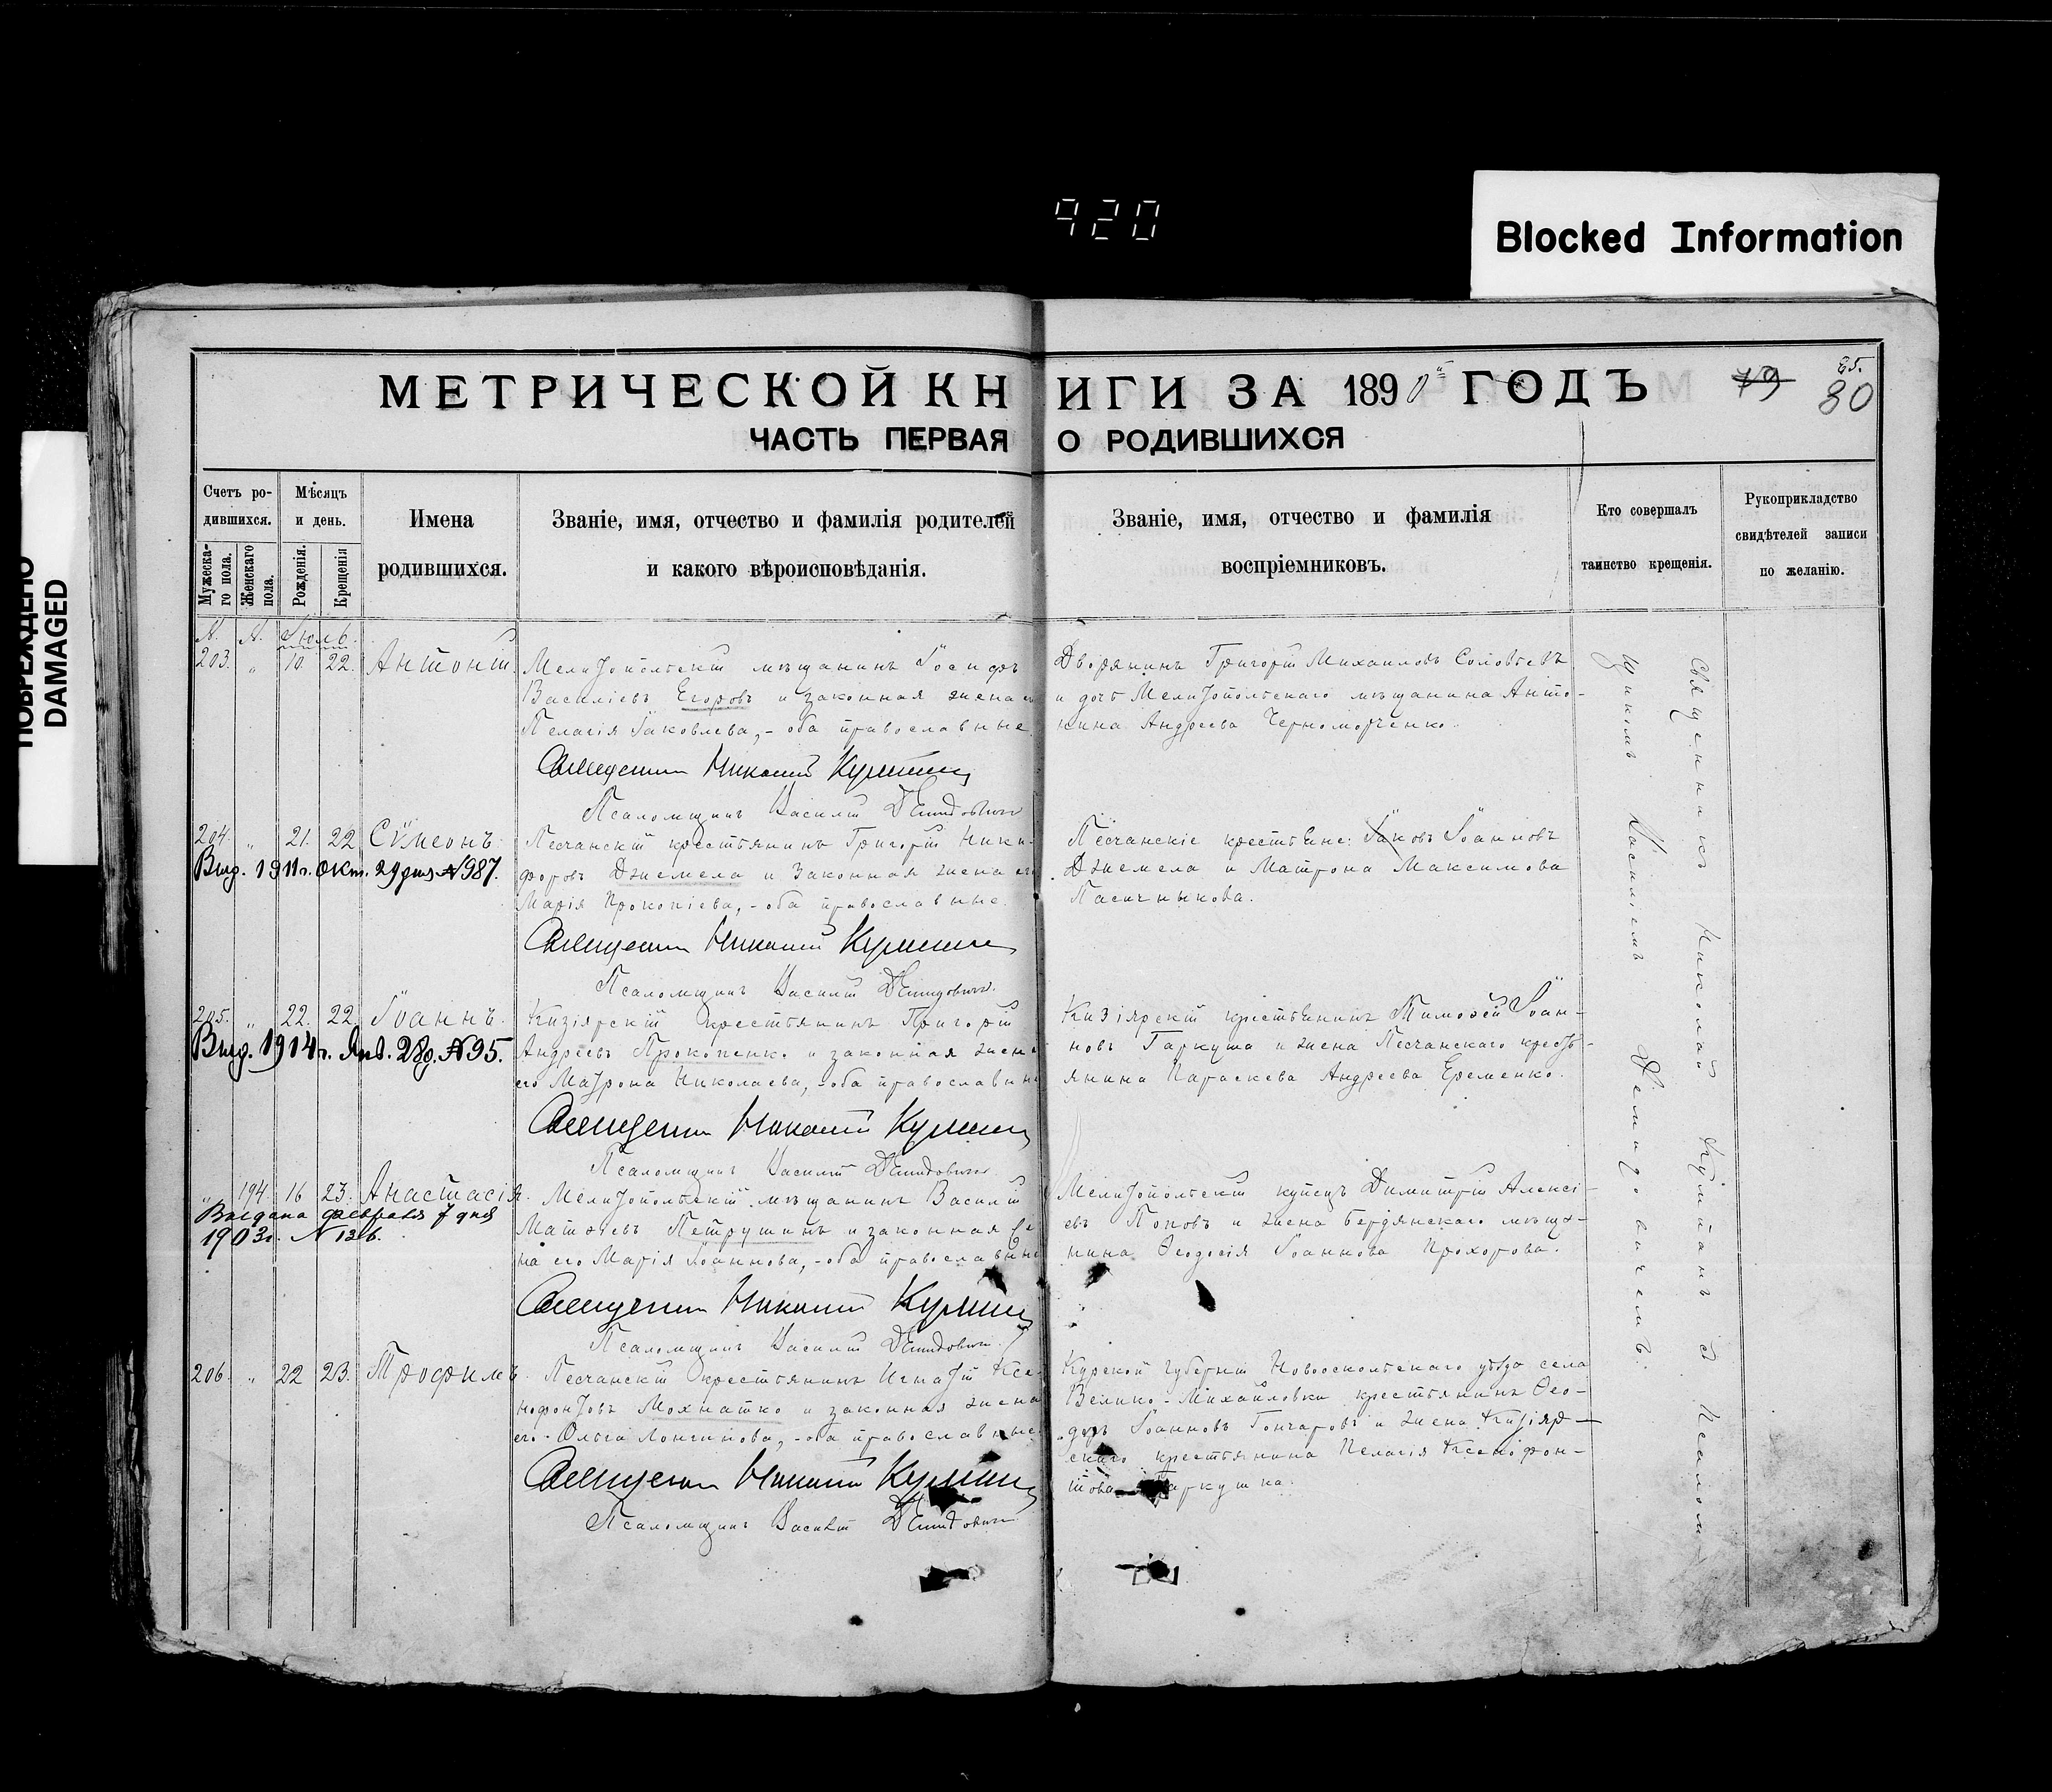 920
Blocked Information
ПОВРЕЖДЕНО
DAMAGED
МЕТРИЧЕСКОЙ КНИГИ ЗА 1890й ГОДЪ
79
85.
80
ЧАСТЬ ПЕРВАЯ О РОДИВШИХСЯ
Счетъ ро-
дившихся.
Мужеска-
го пола.
Женскаго
пола.
Мѣсяцъ
и день.
Рожденія.
Крещенія
Имена
родившихся.
Званіе, имя, отчество и фамилія родителей
и какого вѣроисповѣданія.
Званіе, имя, отчество и фамилія
воспріемниковъ.
Кто совершалъ
таинство крещенія.
Рукоприкладство
свидѣтелей записи
по желанію.
Іюль.
203. " 10. 22. Антоній.
Мелитопольскій мѣщанинъ Іосифъ
Василіевъ Егоровъ и законная жена
Пелагія Іаковлева, - оба православные
Священникъ Николай
Псаломщикъ Василій Демидовичъ
Дворянинъ Григорій Михаиловъ Соловьевъ
и дочь Мелитопольскаго мѣщанина Анто-
нина Андреева Черноморченко.
204. " 21. 22 Сѵмеонъ.
Выд. 1911г. Окт. 29 дня №987.
Песчанскій крестьянинъ Григорій Ники-
форовъ Джемела и законная жена его
Марія Прокопіева, - оба православные.
Священникъ Николай
Псаломщикъ Василій Демидовичъ.
Песчанскіе крестьяне: Іаковъ Іоанновъ
Джемела и Матрона Максимова
Пасичникова.
205. " 22. 22. Іоаннъ.
Выд. 1914г. Янв. 28д. №95.
Кизіярскій крестьянинъ Григорій
Андреевъ Прокопенко и законная жена
его Матрона Николаева, - оба православные
Священникъ Николай
Псаломщикъ Василій Демидовичъ
Кизіярскій крестьянинъ Тимофей Іоан-
новъ Гаркуша и жена Песчанскаго кресть-
янина Параскева Андреева Еременко.
" 194. 16 23. Анастасія.
Выдана февраля 7 дня
1903г. № 136.
Мелитопольскій мѣщанинъ Василій
Матфіевъ Петрушинъ и законная же-
на его Марія Іоаннова, - оба православные
Священникъ Николай
Псаломщикъ Василій Демидовичъ.
Мелитопольскій купецъ Димитрій Алексі-
евъ Поповъ и жена Бердянскаго мѣща-
нина Ѳеодосія Іоаннова Прохорова.
206. " 22 23. Трофимъ.
Песчанскій крестьянинъ Игнатій Ксе-
нофонтовъ Мохнатко и законная жена
его Ольга Лонгинова, - оба православные
Священникъ Николай
Псаломщикъ Василій Демидовичъ
Курской губерніи Новооскольскаго уѣзда села
Велико-Михайловки крестьянинъ Ѳео-
доръ Іоанновъ Гончаровъ и жена Кизіяр-
скаго крестьянина Пелагія Ксенофон-
това Гаркушка.
Священникъ Николай съ Псалом-
щикомъ Василіемъ Демидовичемъ.